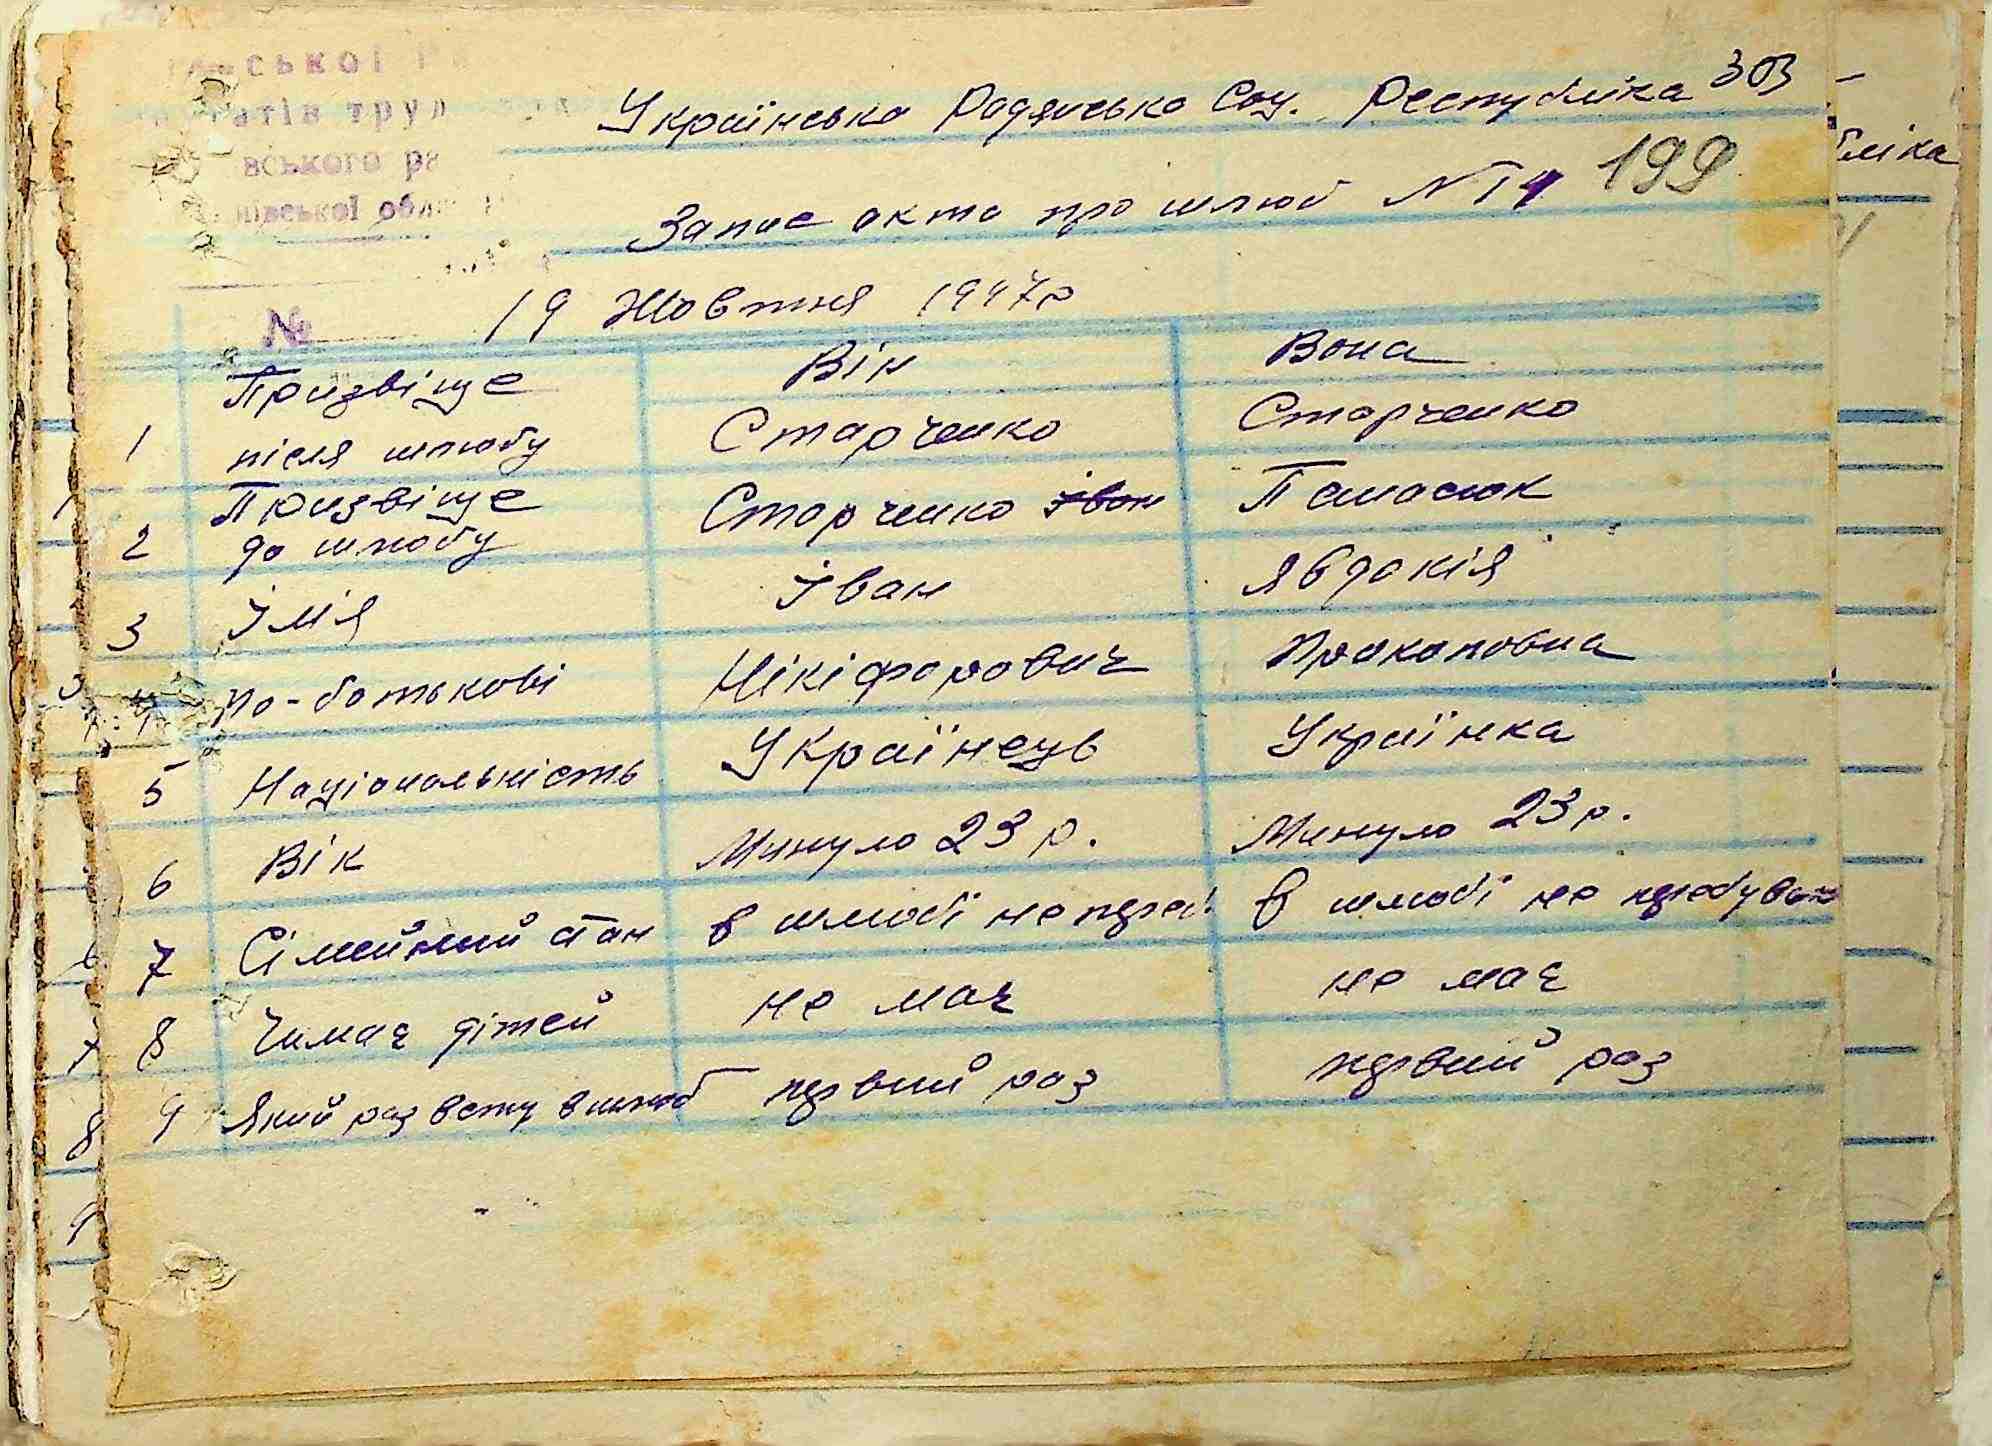 ської
атів труд
вського ра
нівської обл
303
Українська Радянська Соц. Республіка
199
Запис акта про шлюб №14
№
19 Жовтня 1947р
Призвіще Він Вона
1 після шлюбу Старченко Старченко
Призвіще
2 до шлюбу Старченко Іван
3 Імія Іван Явдокія
4 по-батькові Нікіфорович Прокоповна
5 Національність Українець Українка
6 Вік Минуло 23 р. Минуло 23 р.
7 Сімейний стан в шлюбі не переб. в шлюбі не перебувала
8 Чи має дітей не має не має
9 Який раз вступ в шлюб первий раз первий раз
бліка
7
8
9